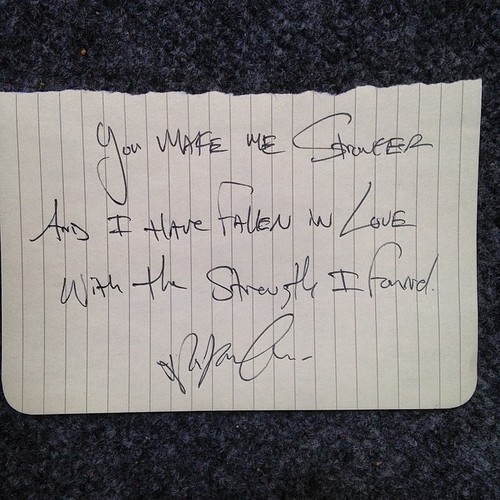 You MAKE ME STRONGER
AND I HAVE FALLEN IN LOVE
WITH the Strength I found.